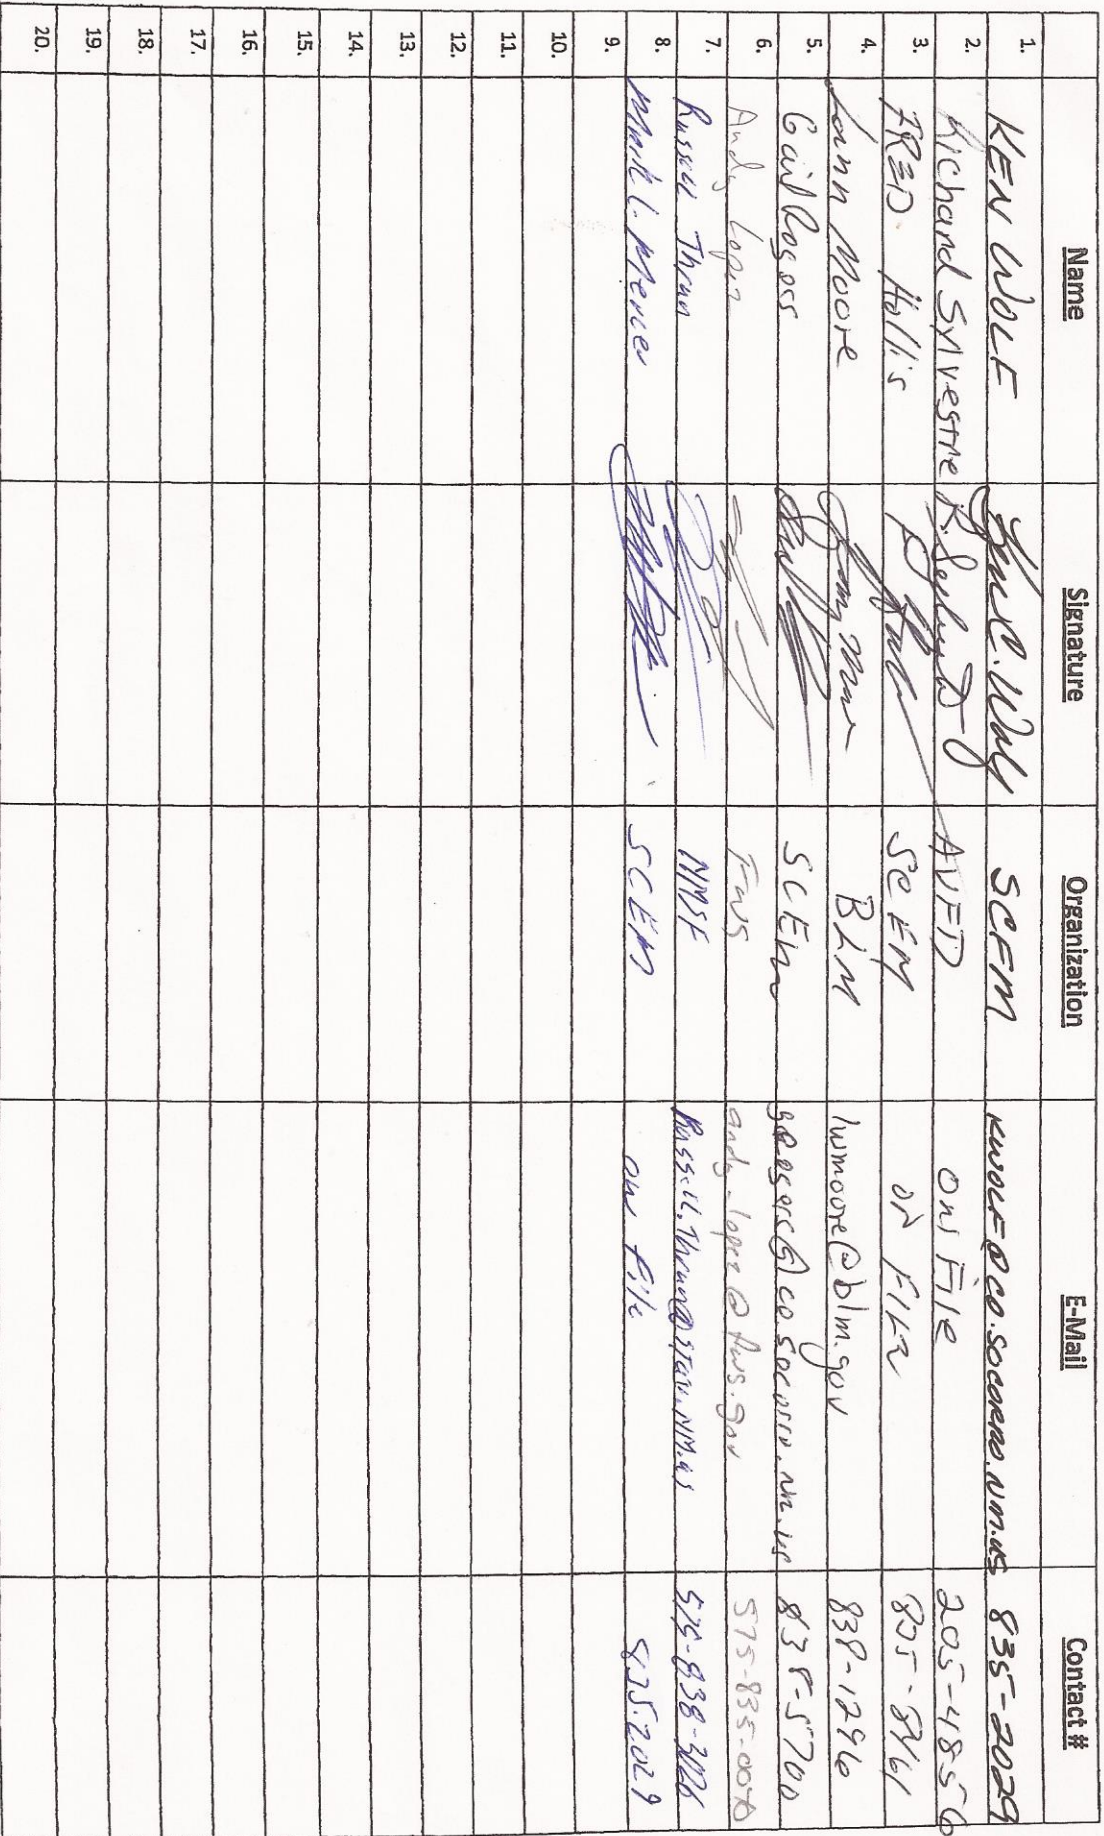 Name Signature Organization E-Mail Contact #
1. KEN WOLF Ken C. Wolf SCFM KWOLF@CO.SOCORRO.NM.US 835-2029
2. Richard Sylvestre R. Sylvestre AVFD ON File 205-4855
3. FRED Hollis SCEM ON FILE 835-8461
4. Lann Moore BLM lwmoore@blm.gov 838-1296
5. Gail Rogers SCEM grogers@co.socorro.nm.us 838-5700
6. Andy Lopez FWS andy_lopez@fws.gov 575-835-
7. Russell Thrun NMSF Russell.Thrun@state.NM.us 575-838-
8. Mark L. SCEM on file 835.2029
9.
10.
11.
12.
13.
14.
15.
16.
17.
18.
19.
20.